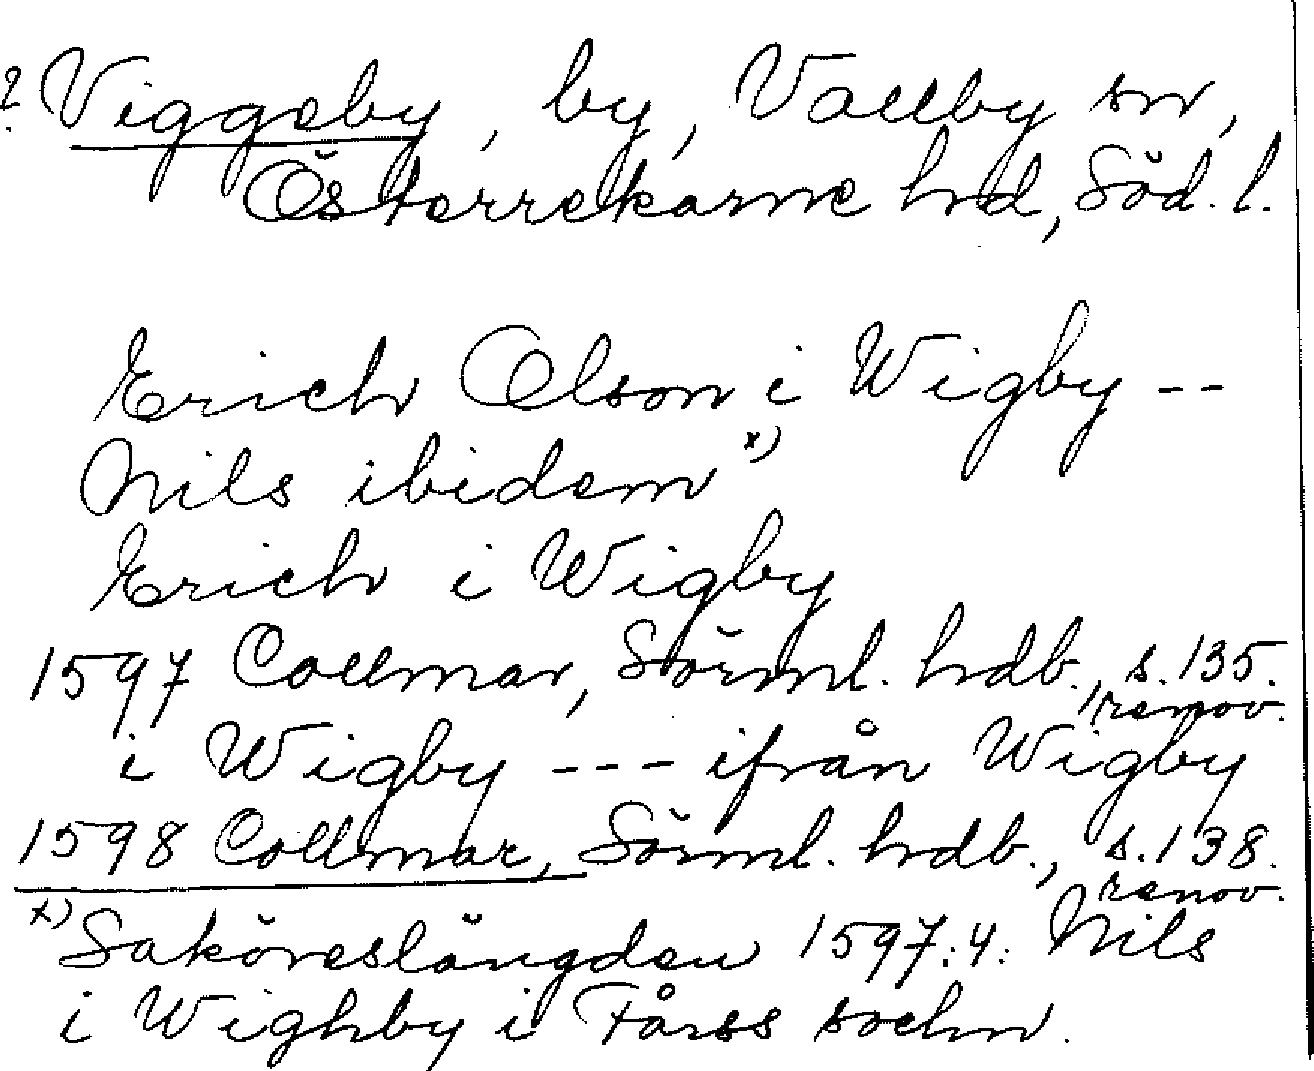 ? Viggeby, by, Vallby sn,
Österrekarne hd, Söd. l.
Erich Olson i Wigby --
Nils ibidem x)
Erich i Wigby
1597 Collmar, Sörml. hdb., s. 135.
renov.
i Wigby --- ifrån Wigby
1598 Collmar, Sörml. hdb., s. 138.
renov.
x) Saköreslängden 1597:4: Nils
i Wighby i Fårss sochn.